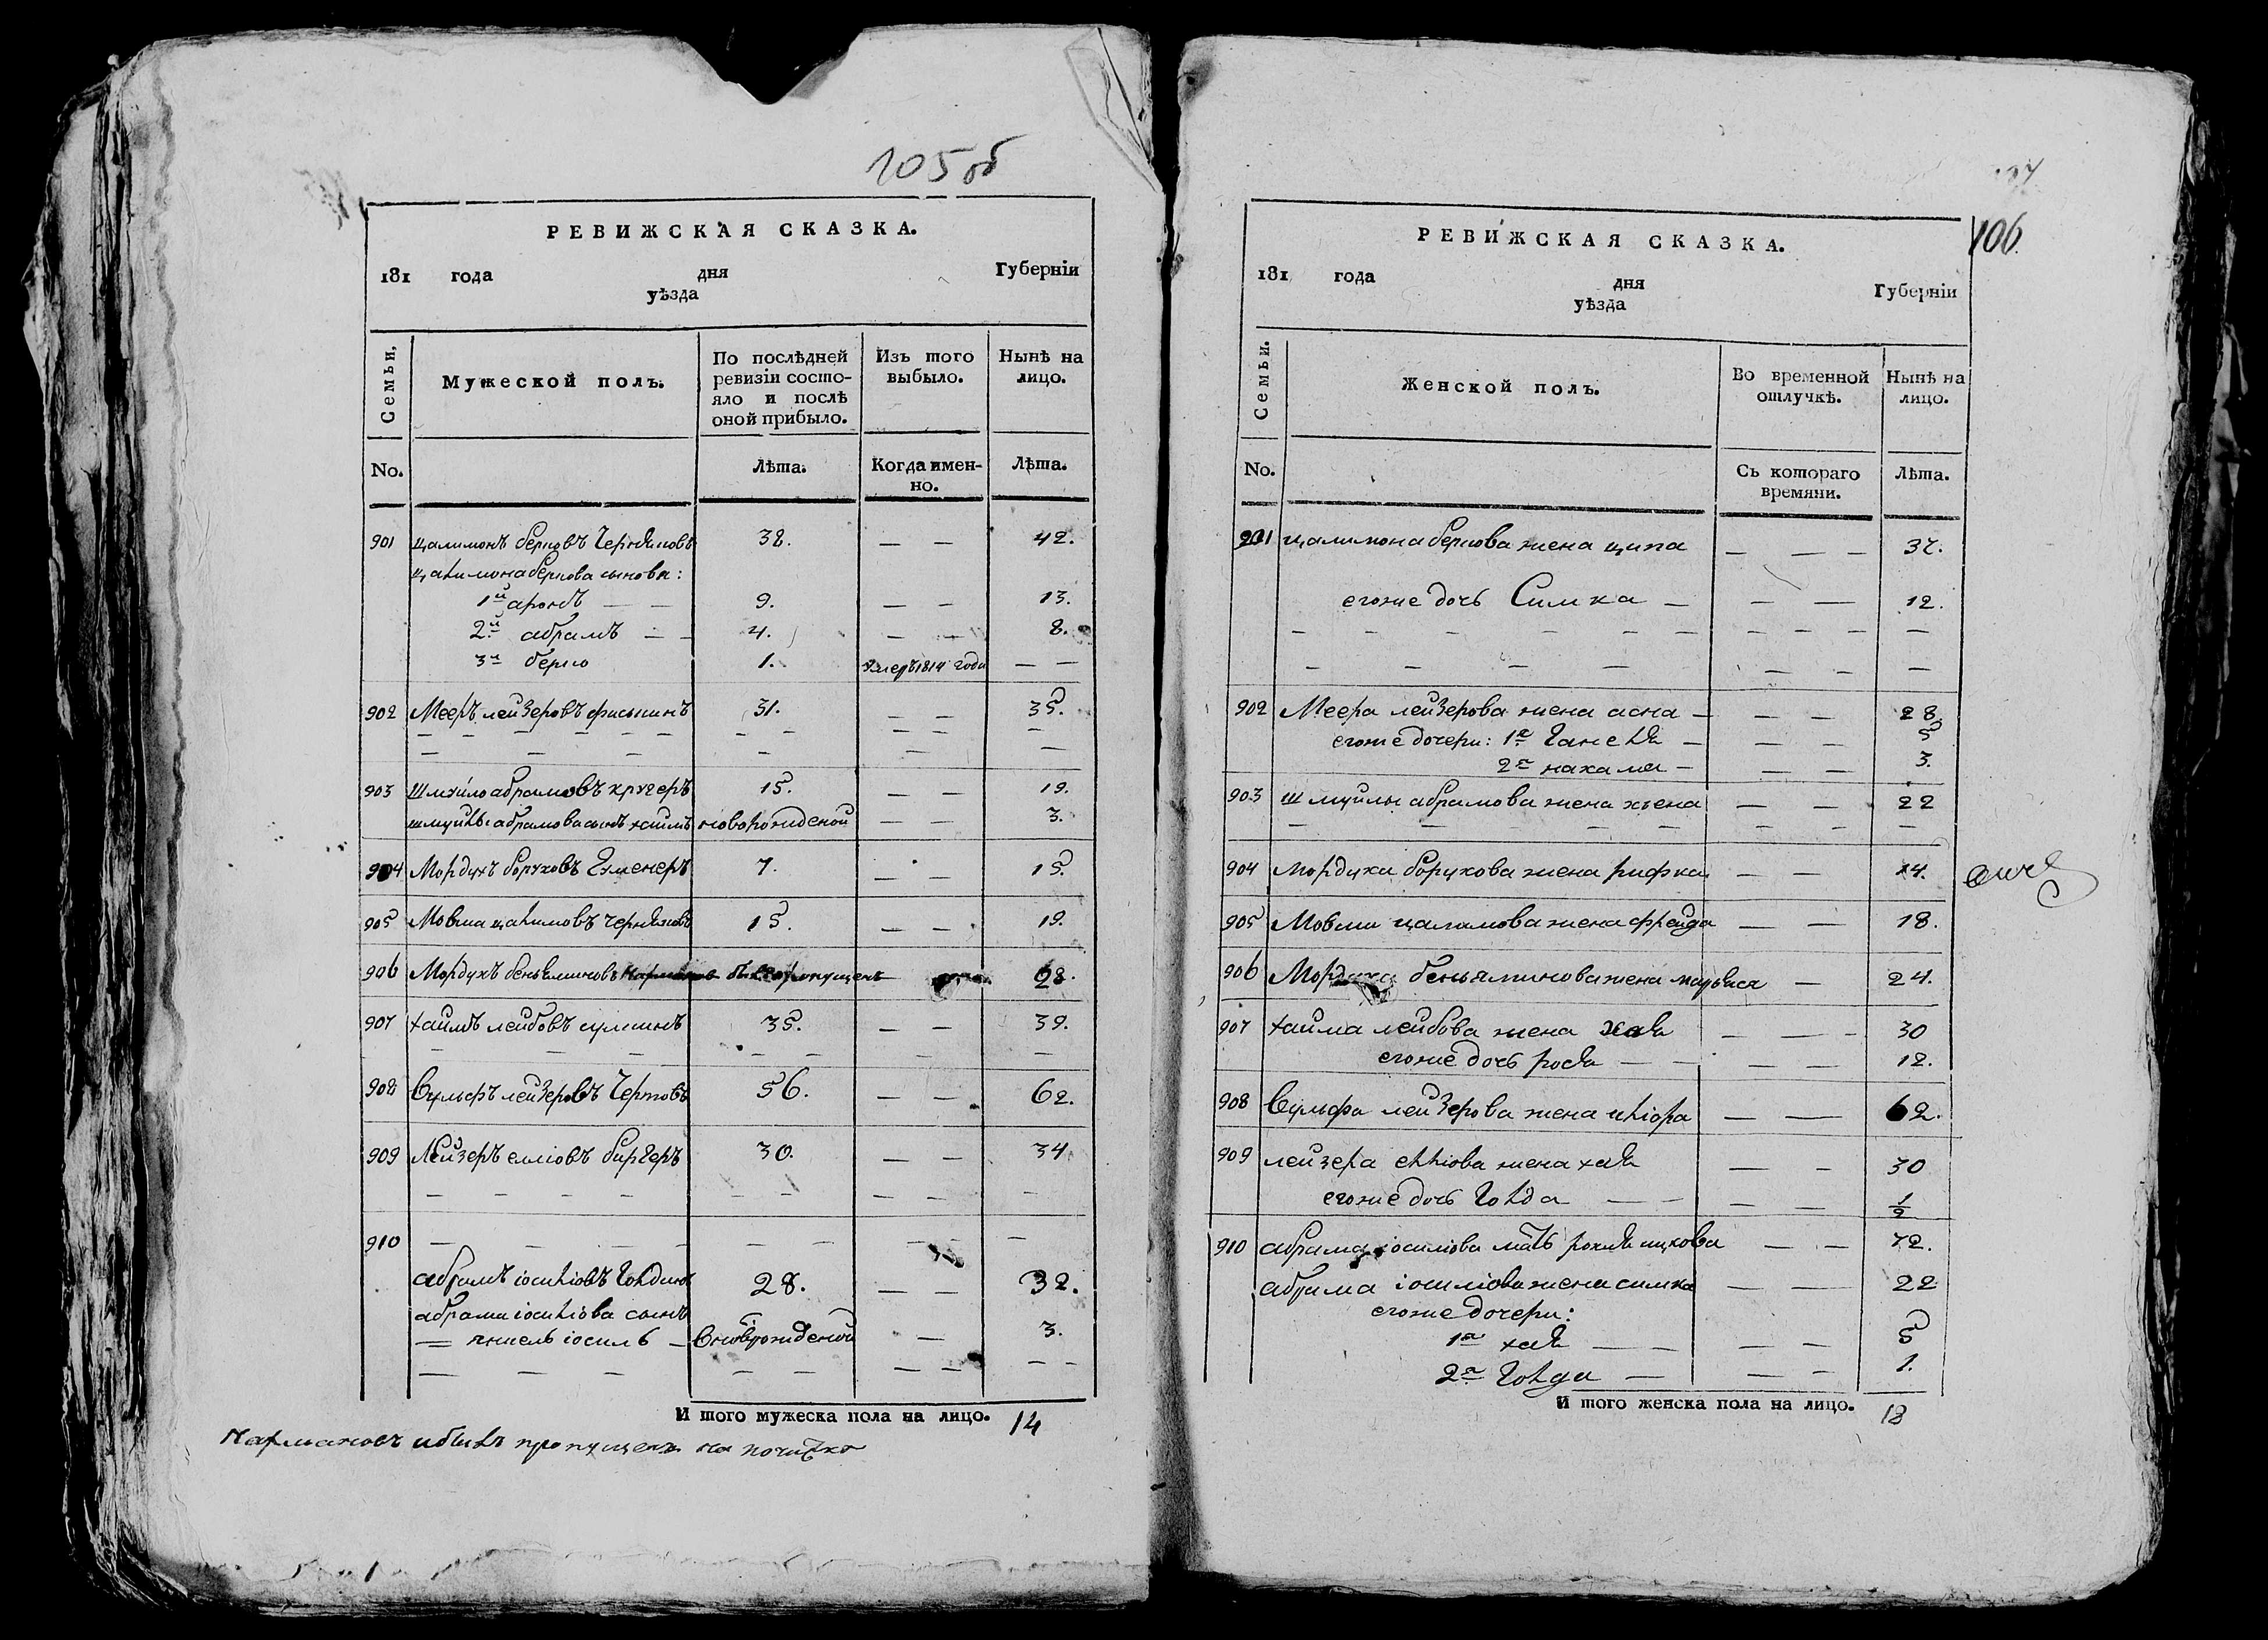 105 об
РЕВИЖСКАЯ СКАЗКА.
181 года дня Губернiи
уѣзда
Семьи,
Мужеской полъ.
По послѣдней ревизiи состо-
яло и послѣ
оной прибыло.
Изъ того выбыло.
Нынѣ на лицо.
No.
Лѣта.
Когда имен-
но.
Лѣта.
901 цалимонъ берковъ 38. — — 42.
цалимона беркова сынови:
1й аронъ — — 9. — — 13.
2й абрамъ — — 4. — — 8.
3й берко 1. умеръ 1814 года — —
902 Мееръ лейзеровъ фиськинъ 31. — — 35.
903 Шмуйло абрамовъ кругеръ 15. — — 19.
шмуйлы абрамова сынъ хаимъ новорожденой — — 3.
904 Мордухъ боруховъ 7. — — 15.
905 Мовша цалимовъ 15. — — 19.
906 Мордухъ беньяминовъ 28.
907 хаимъ лейбовъ 35. — — 39.
908 Вульфъ лейзеровъ Чертовъ 56. — — 62.
909 Лейзеръ еллiовъ бургеръ 30. — — 34
910
абрамъ iосилiовъ 28. — — 32.
абрама iосилiова сынъ
— янкель iосиль — вновьрожденой — 3.
И того мужеска пола на лицо. 14
пропущенъ по
106.
РЕВИЖСКАЯ СКАЗКА.
181 года дня Губернiи
уѣзда
Семьи.
Женской полъ.
Во временной отлучкѣ.
Нынѣ на лицо.
No.
Съ котораго времяни.
Лѣта.
901 цалимона беркова жена ципа — — — 37.
егоже дочь Симка — — — 12.
902 Меера лейзерова жена асна — — — 28.
егоже дочери: 1я Ганеля — — — 5
2я нахама — — — 3.
903 шмуйлы абрамова жена хьена — — 22
904 мордуха борухова жена рифка — — 14.
905 Мовши цалимова жена фрейда — — 18.
906 Мордуха беньяминова жена — 24.
907 хаима лейбова жена хая — — — 30
егоже дочь рося — — — — 12.
908 Вульфа лейзерова жена — — 62.
909 лейзера еллiова жена хая — — 30
егоже дочьГолда — — — — 1/2
910 абрама iосилiова мать рохля ицкова — — 72.
абрама iосилiова жена симка — — 22
егоже дочери:
1я хая — — — — 5
2я Голда — — — 1.
И того женска пола на лицо. 18